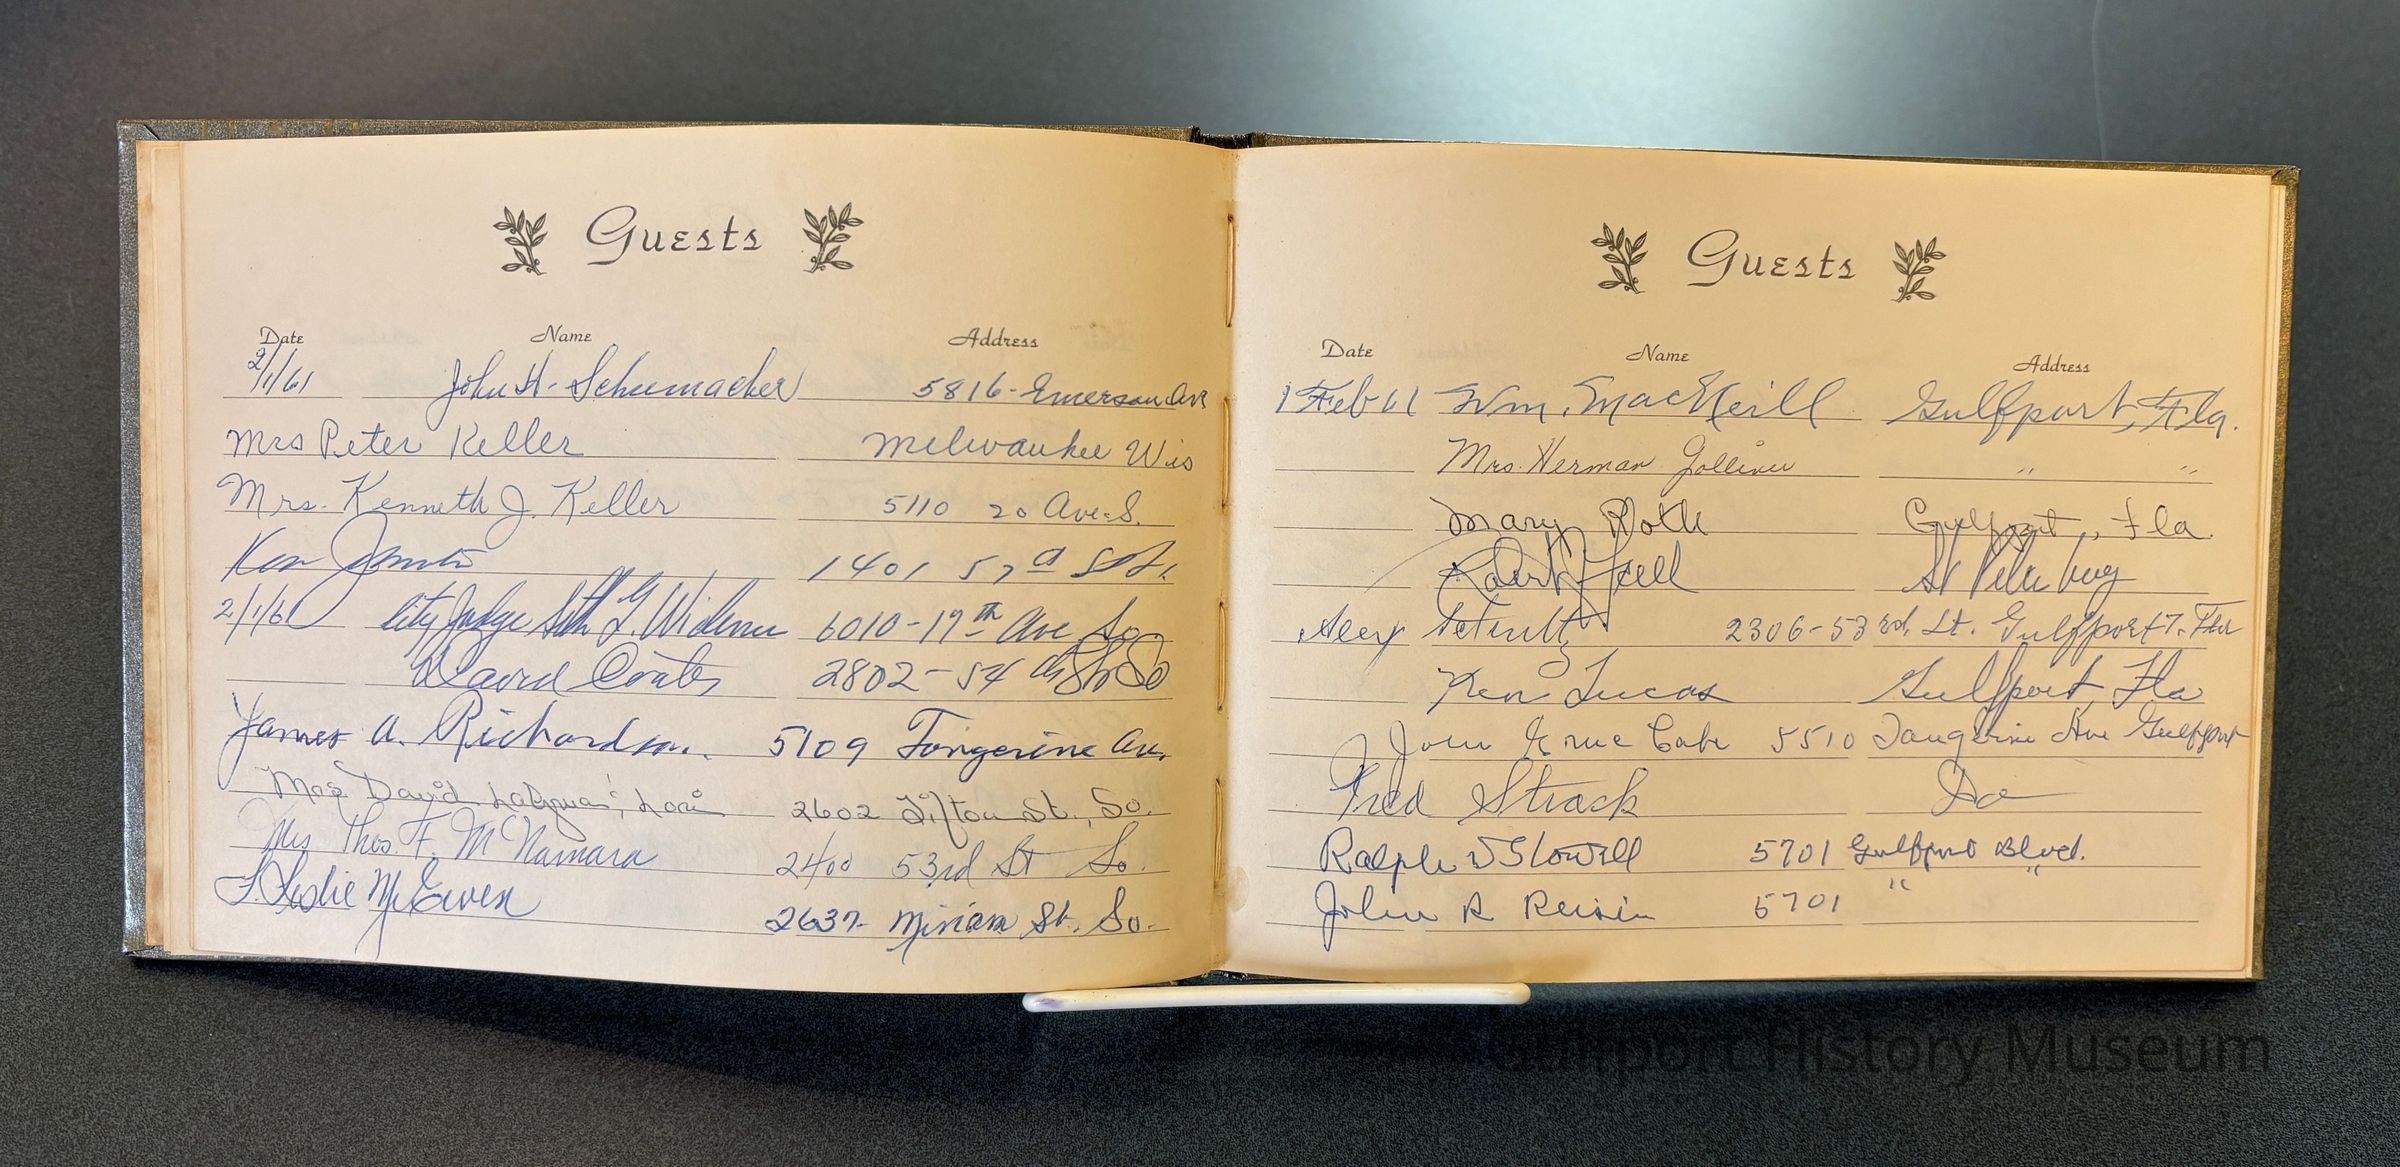 Guests
Date Name Address
2/1/61 John H. Schumacher 5816 - Emerson Ave
Mrs Peter Keller Milwaukee Wis
Mrs. Kenneth J. Keller 5110 20 Ave. S.
Ken 1401 57
2/1/61 City Judge Seth G. Widener 6010-19th Ave So
David Coates 2802-54 th St So
James A. Richardson. 5109 Tangerine Av.
Mrs David 2602 Tifton St., So.
Mrs Thos. F. McNamara 2400 53rd St So.
J. Leslie McEwen 2637- Miriam St. So.
Guests
Date Name Address
1 Feb 61 Wm. MacNeill Gulfport, Fla.
Mrs. Herman Golliver " "
Mary Roth Gulfport, Fla.
Robert St Petersburg
2306-53 rd. St. Gulfport 7. Fla
Ken Lucas Gulfport Fla
5510 Tangerine Ave Gulfport
Fred Strack Do
Ralph W Stowell 5701 Gulfport Blvd.
John R 5701 " "
Gulfport History Museum